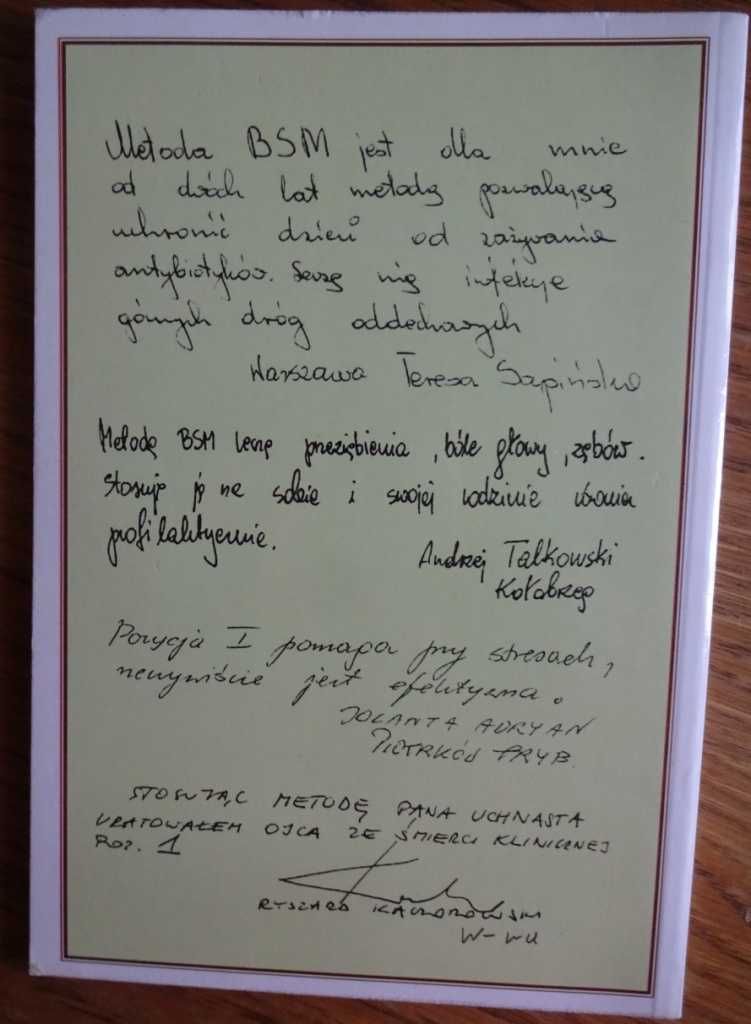 Metoda BSM jest dla mnie
od dwóch lat metodą pozwalającą
uchronić dzieci od zażywania
antybiotyków. Leczę nią infekcje
górnych dróg oddechowych
Warszawa Teresa Szpińska
Metodą BSM leczę przeziębienia, bóle głowy, zębów.
Stosuję ją na sobie i swojej rodzinie również
profilaktycznie.
Andrzej Talkowski
Kołobrzeg
Pozycja I pomaga przy stresach,
rzeczywiście jest efektywna.
JOLANTA ADRYAN
PIOTRKÓW TRYB.
STOSUJĄC METODĘ PANA UCHNASTA
URATOWAŁEM OJCA ZE ŚMIERCI KLINICZNEJ
POZ. 1
RYSZARD KACZOROWSKI
W-wa